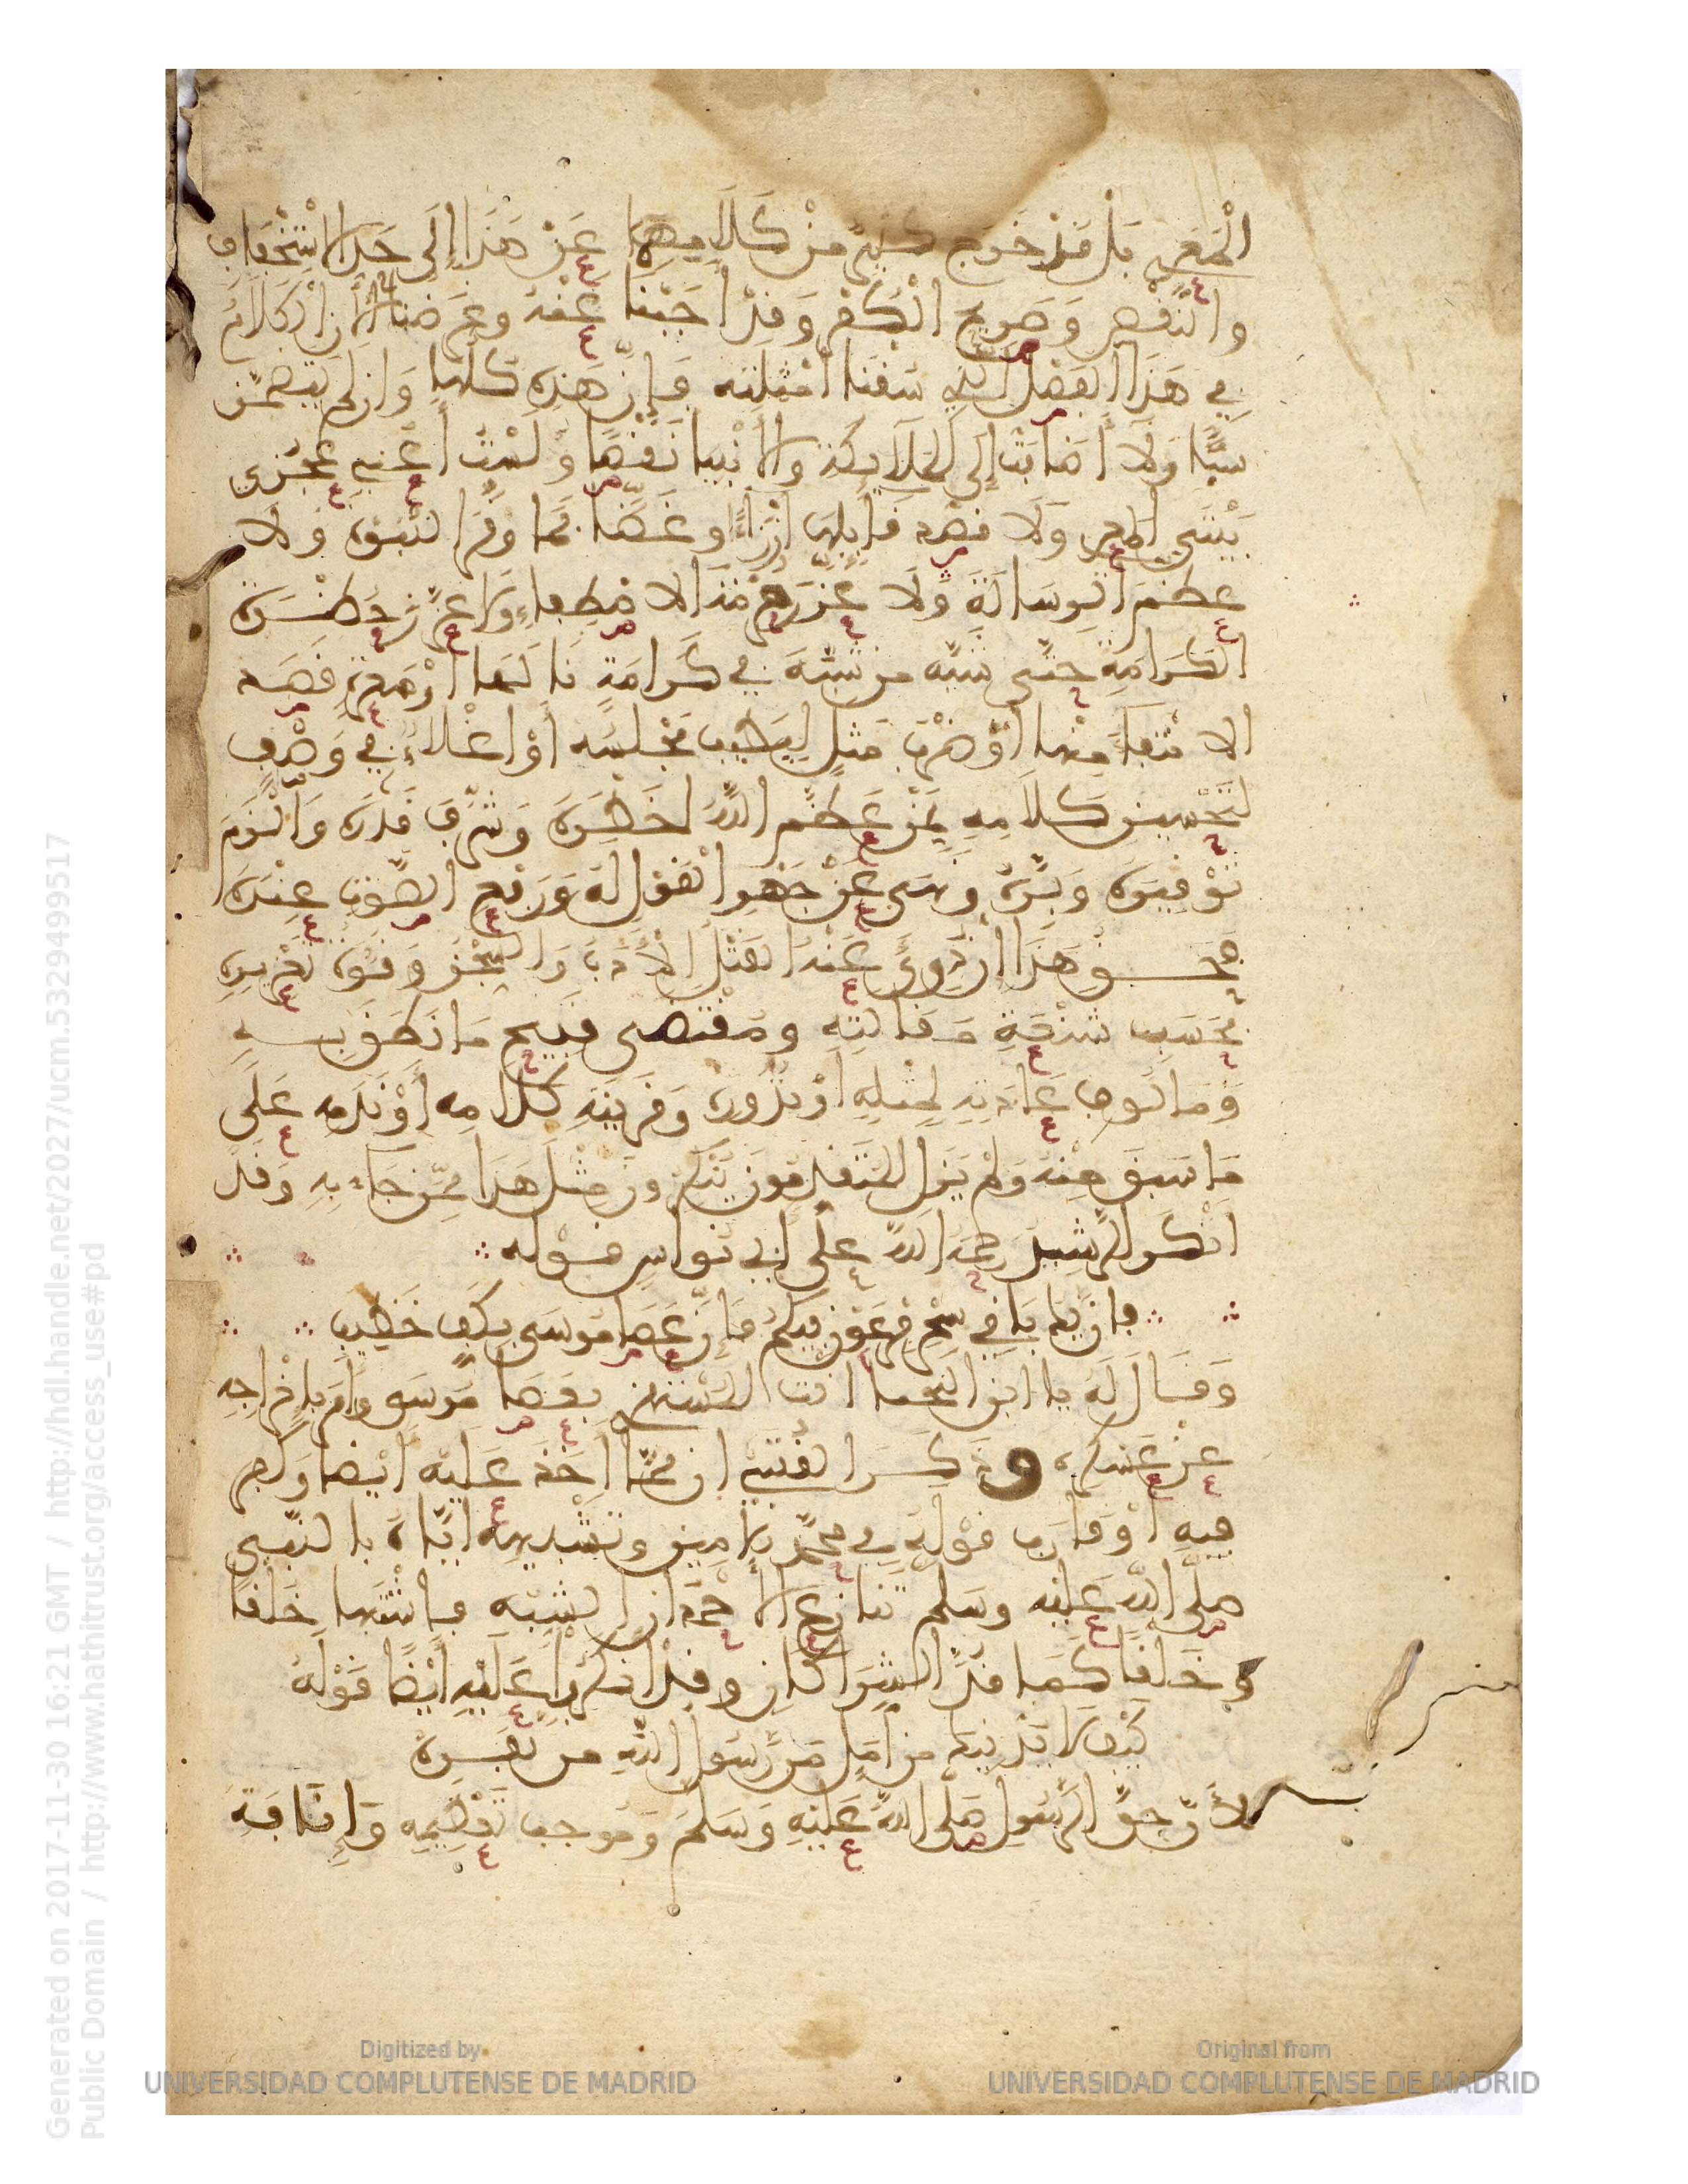 المعري بل قد خرج كثير من كلامهما عن هذا إلى حد الاستخفاف
والنقص وصريح الكفر وقد اجبنا عنه وغرضنا الان الكلام
في هذا الفصل الذي سقنا امثلته فإن هذه كلها وان لم يتضمن
سبا ولا أضافت إلى الملايكة والانبيا نقصا ولست أعني عجزي
بيتي المعري ولا قصد قايلها ازراء او غضا فما وقر النبوة ولا
عظم الرسالة ولا عزر حرمة الاصطفاء ولا عزز حظوة
الكرامة حتى شبه من شبه في كرامة نالها او معرة قصد
الانتفاء منها أو ضرب مثل لتطييب مجلسه أو اغلاء في وصف
لتحسين كلامه بمن عظم الله خطره وشرف قدره والزم
توقيره وبره ونهى عن جهر القول له ورفع الصوت عنده
فحق هذا ان درئ عنه القتل الأدب والسجن وقوة تعزيره
بحسب شنعة مقالته ومقتضى قبيح ما نطق به
ومالوف عادته لمثله او ندوره وقرينة كلامه أو ندمه على
ما سبق منه ولم يزل المتقدمون ينكرون مثل هذا ممن جاء به وقد
انكر الرشيد رحمه الله على ابي نواس قوله
فان يك باقي سحر فرعون فيكم فان عصا موسى بكف خطيب
وقال له يا ابن اللخنا انت المستهزئ بعصا موسى وأمر باخراجه
عن عسكره وذكر القتبي ان مما اخذ عليه ايضا وكفر
فيه أو قارب قوله في محمد الامين وتشبيهه اياه بالنبي
صلى الله عليه وسلم تنازع الاحمدان الشبه فاشتبها خلقا
وخلقا كما قد الشراكان وقد انكروا عليه أيضا قوله
كيف لا يدنيك من أمل من رسول الله من نفره
لأن حق الرسول صلى الله عليه وسلم وموجب تعظيمه وإنافة
Generated on 2017-11-30 16:21 GMT / http://hdl.handle.net/2027/ucm.5329499517
Public Domain / http://www.hathitrust.org/access_use#pd
Digitized by
UNIVERSIDAD COMPLUTENSE DE MADRID
Original from
UNIVERSIDAD COMPLUTENSE DE MADRID